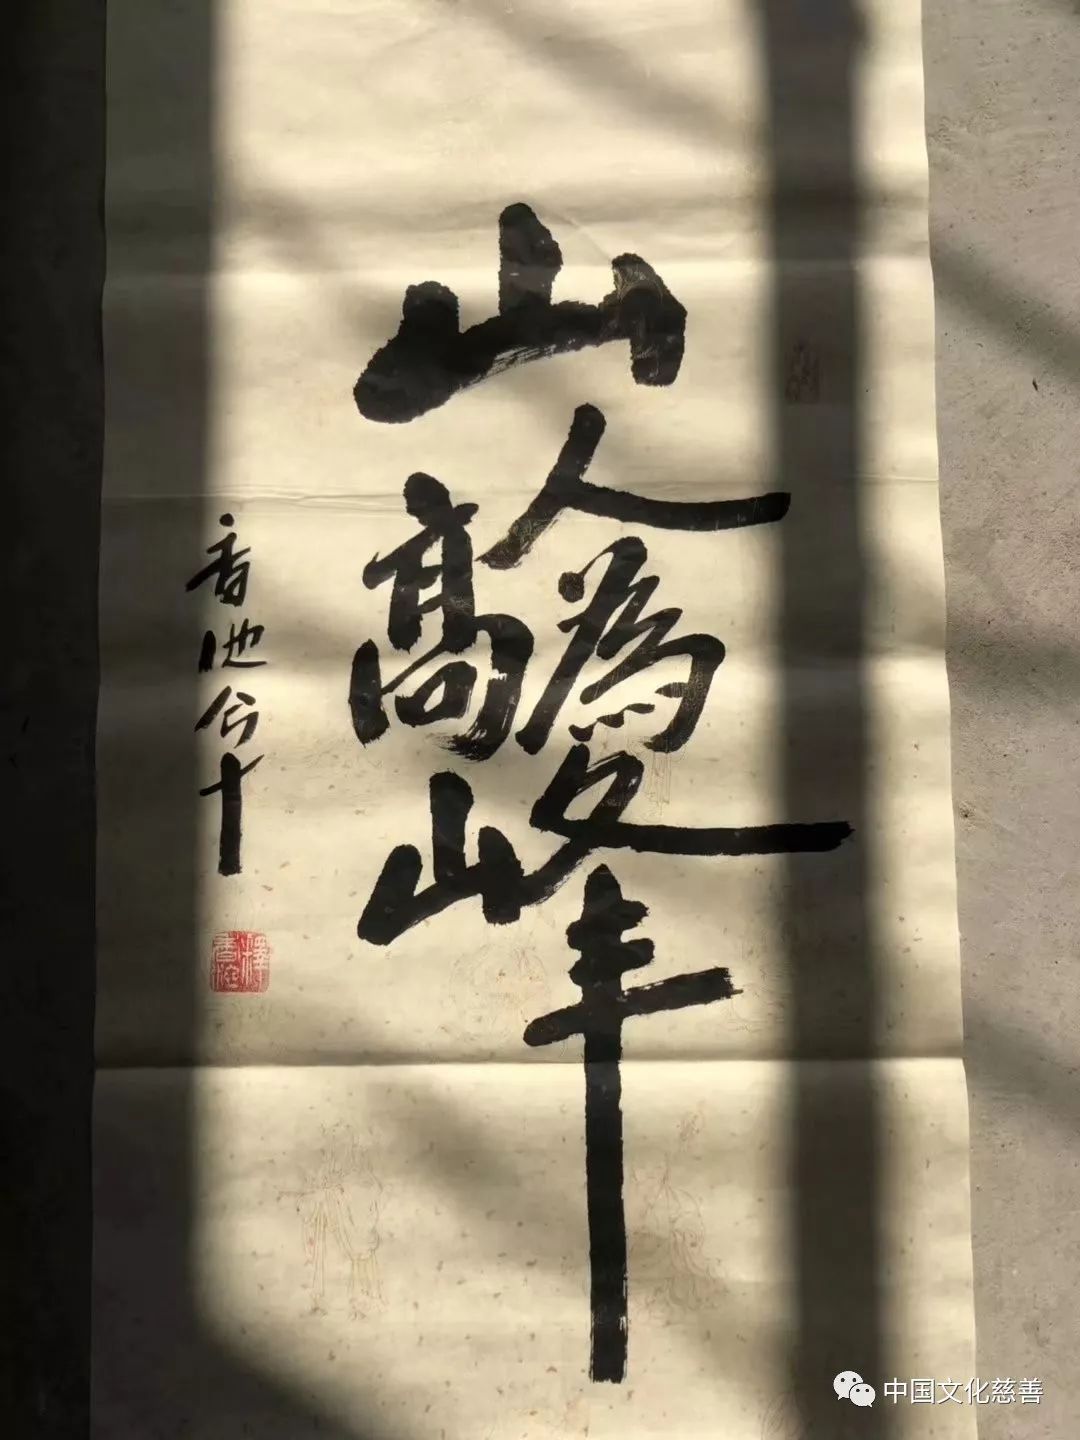 山高人為峰
香池合十
釋香池
中国文化慈善